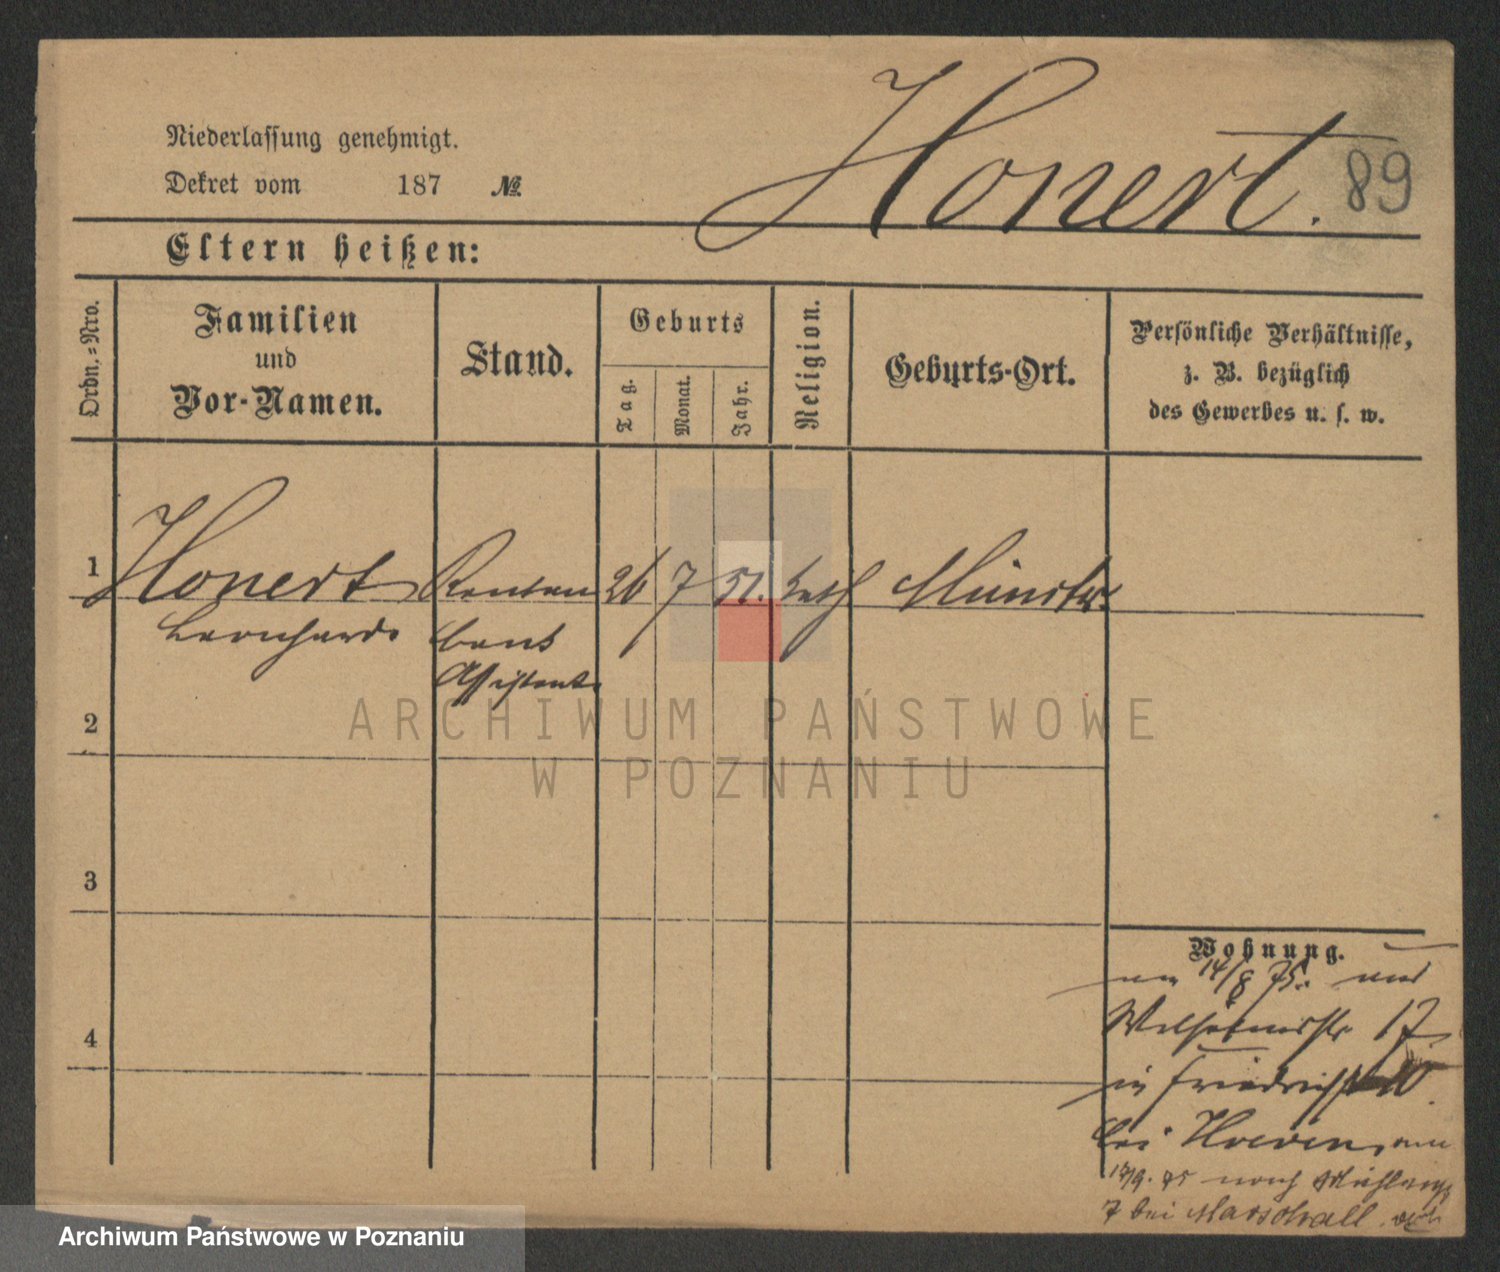 Honert. 89
Niederlassung genehmigt.
Dekret vom 187 №
Eltern heißen:
Ordn.=Nro.
Familien
und
Vor-Namen.
Stand.
Geburts
Tag.
Monat.
Jahr.
Religion.
Geburts-Ort.
Persönliche Verhältnisse,
z. B. bezüglich
des Gewerbes u. s. w.
1 Honert Renten 26 7 51. kath Münster
Bernhard bank
Assistent
2
3
4
Wohnung.
14/8 75.
Wilhelmstr 17
in Friedrichstr 10.
bei Hoeven
17/9. 75 nach Mühlenstr
7 bei Marschall
ARCHIWUM PAŃSTWOWE
W POZNANIU
Archiwum Państwowe w Poznaniu